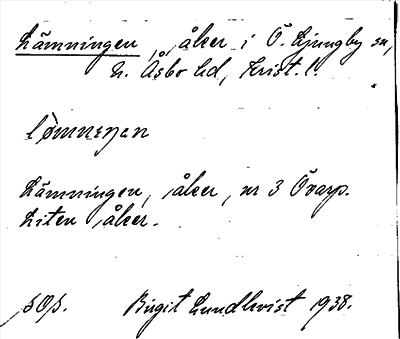 Lämningen, åker i Ö. Ljungby sn,
N. Åsbo hd, Krist. l.
Lämningen, åker, nr 3 Övarp.
Liten åker.
sOp. Birgit Lundkvist 1938.